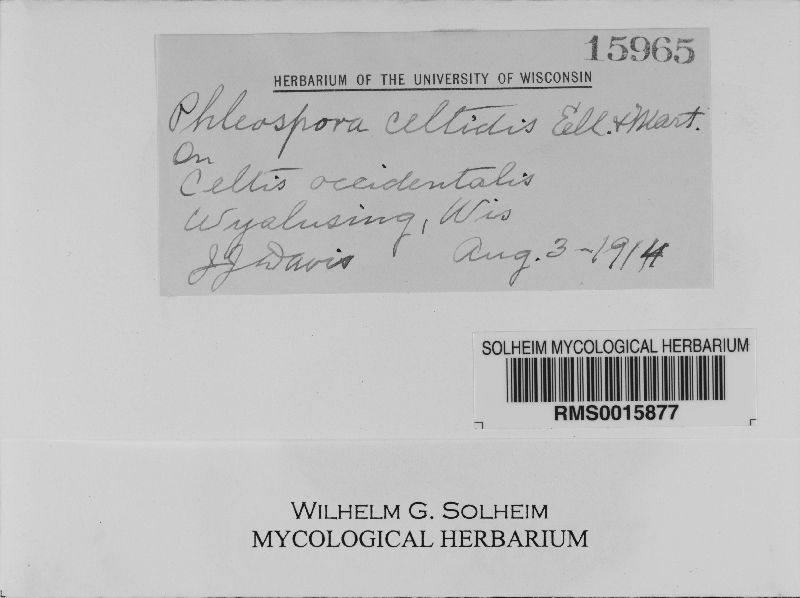 15965
HERBARIUM OF THE UNIVERSITY OF WISCONSIN
Phleospora celtidis Ell. & Mart.
On
Celtis occidentalis
Wyalusing, Wis
JJ Davis Aug. 3-1914
SOLHEIM MYCOLOGICAL HERBARIUM
RMS0015877
WILHELM G. SOLHEIM
MYCOLOGICAL HERBARIUM